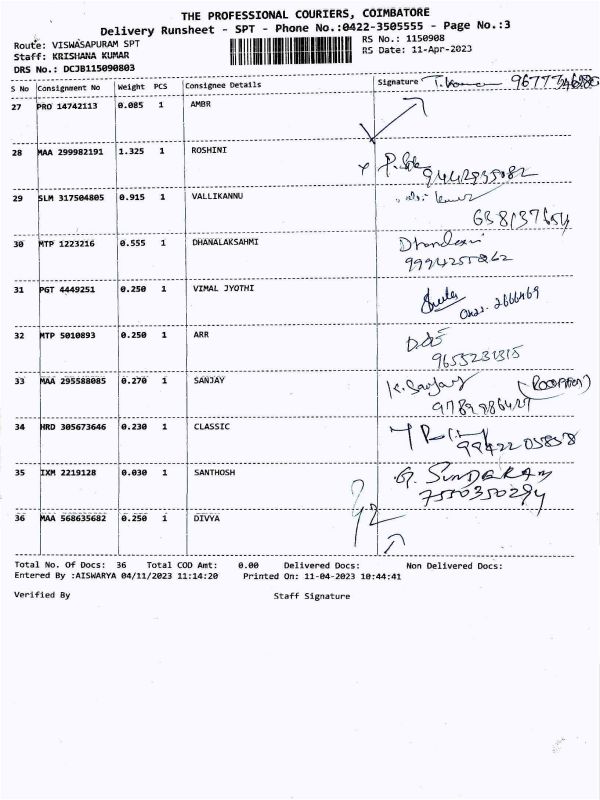 THE PROFESSIONAL COURIERS, COIMBATORE
Delivery Runsheet - SPT - Phone No.:0422-3505555 - Page No.:3
Route: VISWASAPURAM SPT RS No.: 1150908
Staff: KRISHANA KUMAR RS Date: 11-Apr-2023
DRS No.: DCJB115090803
S No Consignment No Weight PCS Consignee Details Signature
27 PRO 14742113 0.085 1 AMBR
28 MAA 299982191 1.325 1 ROSHINI
29 SLM 317504805 0.915 1 VALLIKANNU
30 MTP 1223216 0.555 1 DHANALAKSAHMI
31 PGT 4449251 0.250 1 VIMAL JYOTHI
32 MTP 5010893 0.250 1 ARR
9655231315
33 MAA 295588085 0.270 1 SANJAY K. Sanjay
34 HRD 305673646 0.230 1 CLASSIC
9942205858
35 IXM 2219128 0.030 1 SANTHOSH G. SUNDARAM
7550350294
36 MAA 568635682 0.250 1 DIVYA
Total No. Of Docs: 36 Total COD Amt: 0.00 Delivered Docs: Non Delivered Docs:
Entered By :AISWARYA 04/11/2023 11:14:20 Printed On: 11-04-2023 10:44:41
Verified By Staff Signature